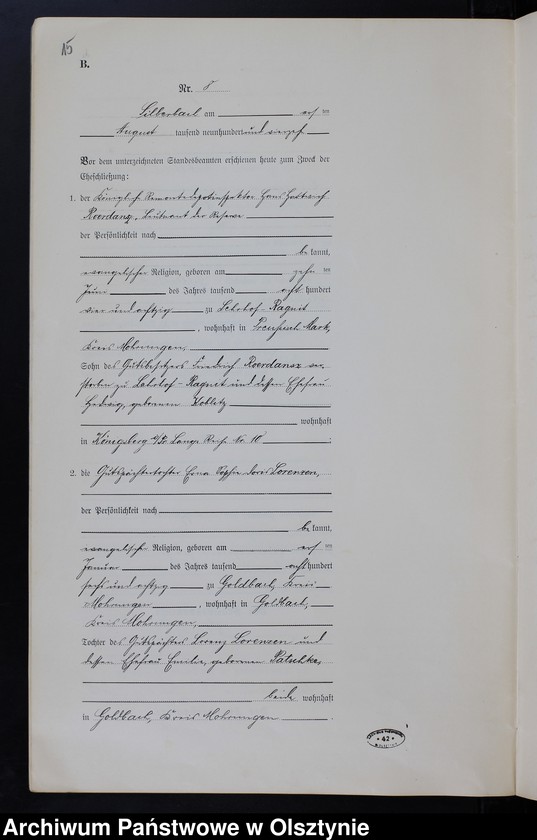 15
B.
Nr. 8
Silberbach am
August tausend neunhundert und
Vor dem unterzeichneten Standesbeamten erschienen heute zum Zweck der
Eheschließung:
1. der Königliche Remontedepotinspektor Hans
Roerdansz, Leutnant der Reserve
der Persönlichkeit nach
be kannt,
evangelischer Religion, geboren am zehn ten
Juni des Jahres tausend acht hundert
vier und achtzig zu Lehrhof-Ragnit
, wohnhaft in Preußisch Mark,
Kreis Mohrungen,
Sohn des Gutsbesitzers Friedrich Roerdansz ver-
storben zu Lehrhof-Ragnit und dessen Ehefrau
Hedwig, geborenen Koblitz
wohnhaft
in Königsberg i/Pr. Lange Reihe No. 10 ;
2. die Gutspächtertochter Erna Sophie Doris Lorenzen,
der Persönlichkeit nach
be kannt,
evangelischer Religion, geboren am ten
Januar des Jahres tausend acht hundert
sechs und achtzig zu Goldbach, Kreis
Mohrungen , wohnhaft in Goldbach,
Kreis Mohrungen,
Tochter des Gutspächters Lorenz Lorenzen und
dessen Ehefrau Emilie, geborenen Patschke,
beide wohnhaft
in Goldbach, Kreis Mohrungen .
42
Archiwum Państwowe w Olsztynie